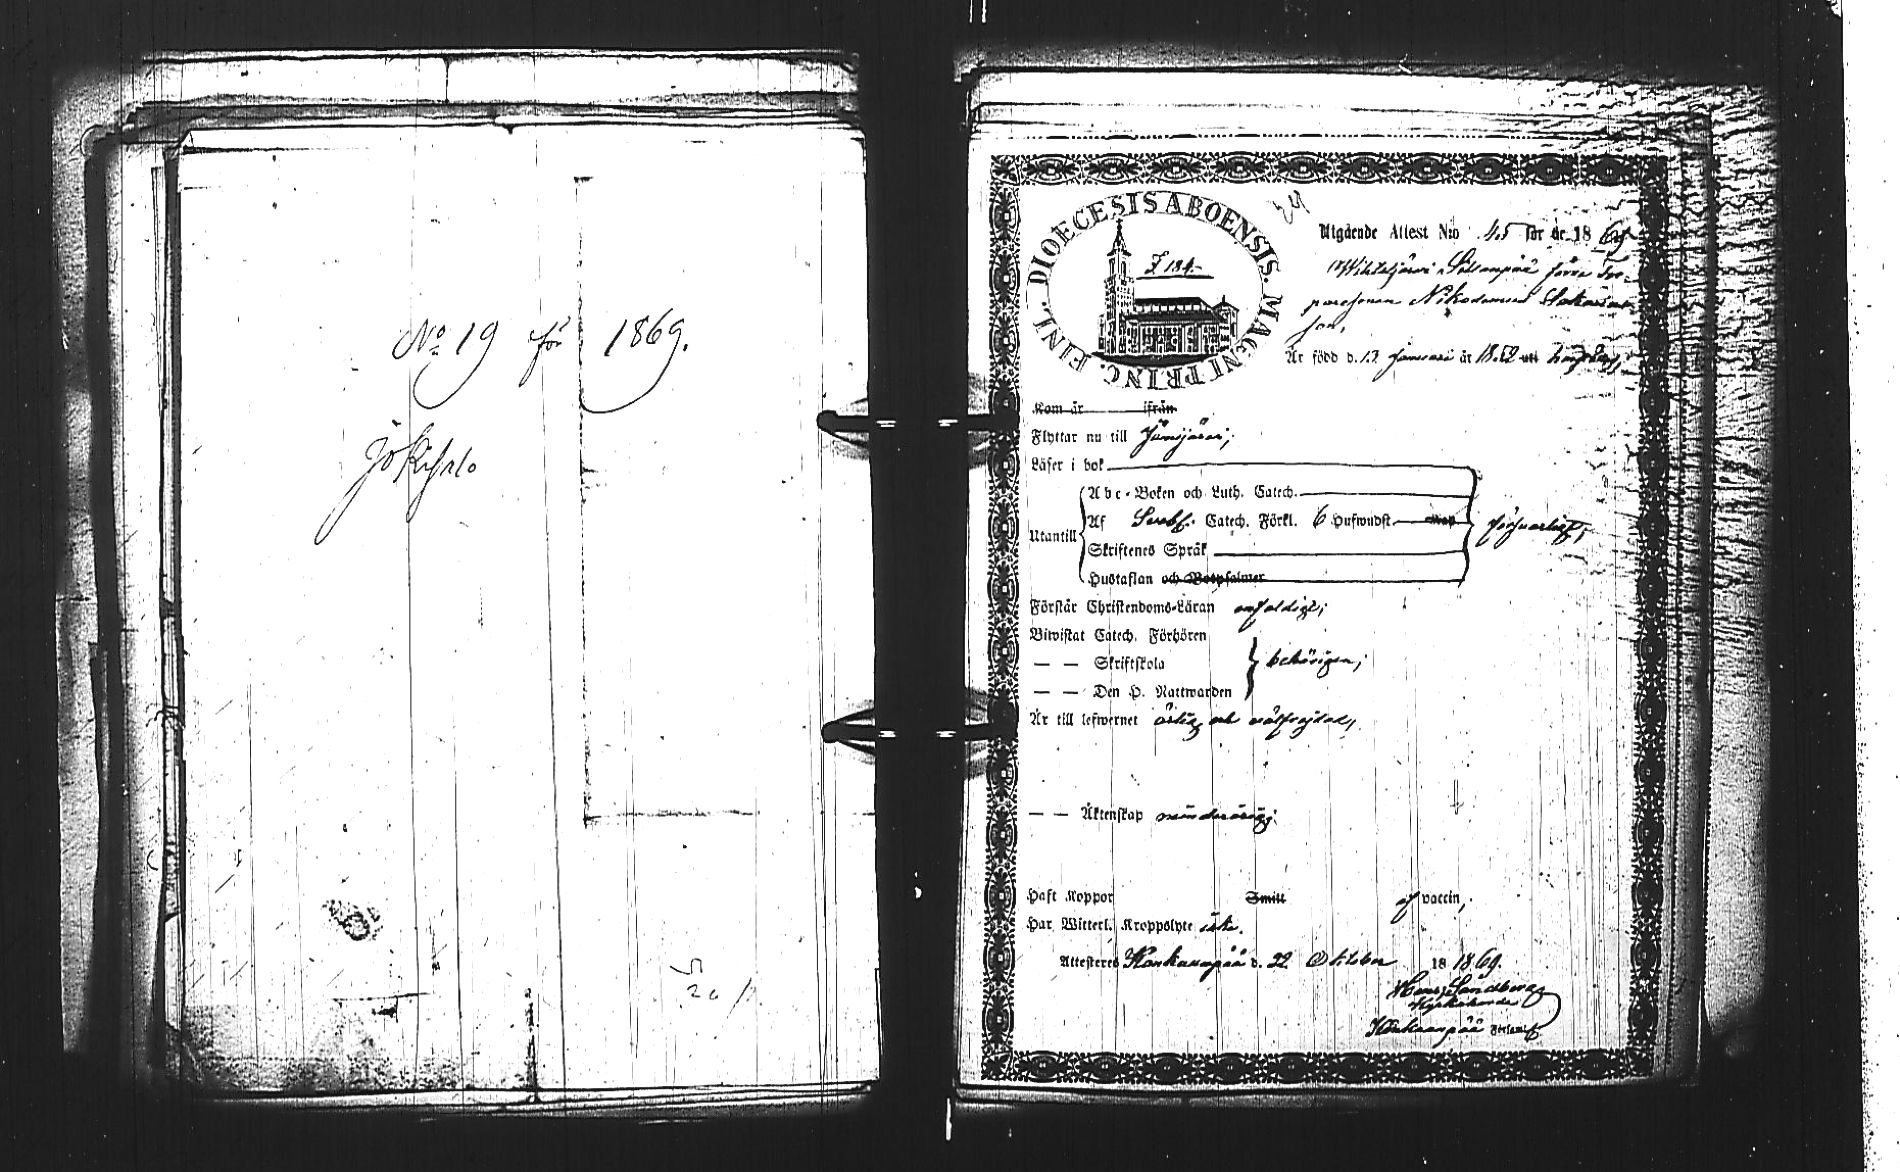 No 19 för 1869.
Jokisalo
5
20
DIOECESIS ABOENSIS. MAGNI PRINC. FINL.
24
Z 184.
Utgående Attest N:o 45 för år 1869
Sillanpää förra
Nikodemus
son,
Är född d. 12 Januari år 1852
Kom år ifrån
Flyttar nu till Jämijärvi;
Läser i bok
Utantill
Abc-Boken och Luth. Catech.
Af Svebil. Catech. Förkl. 6 Hufwudst.
Skriftenes Språk
Hustaflan och Botpsalmer
försvarligt;
Förstår Christendoms-Läran enfaldigt;
Biwistat Catech. Förhören
— — Skriftskola
— — Den H. Nattwarden
behörigen;
Är till lefwernet ärlig och välfrejdad,
— — Äktenskap minderårig;
Haft Koppor Smitt af vaccin,
Har Witterl. Kroppslyte icke.
Attesteres Kankaanpää d. 22 Oktober 18 1869.
Sandberg
Kyrkoherde
Kankaanpää Församl.